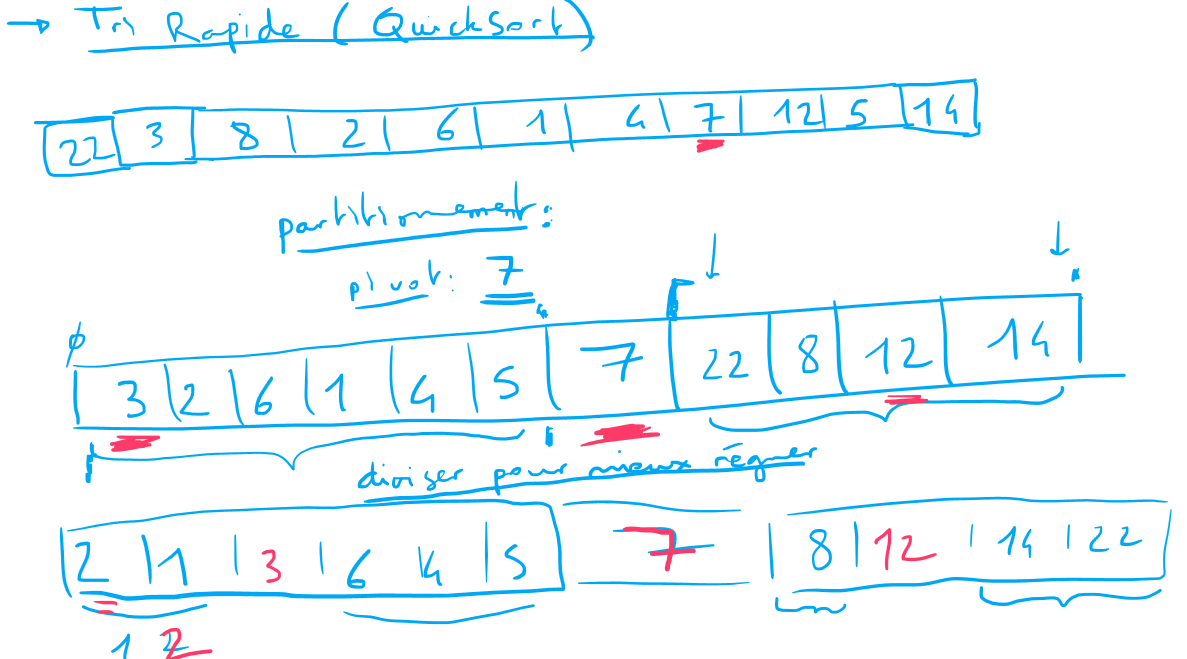 → Tri Rapide (QuickSort)
22 3 8 2 6 1 4 7 12 5 14
partitionnement:
pivot: 7
3 2 6 1 4 5 7 22 8 12 14
diviser pour mieux régner
2 1 3 6 4 5 7 8 12 14 22
1 2